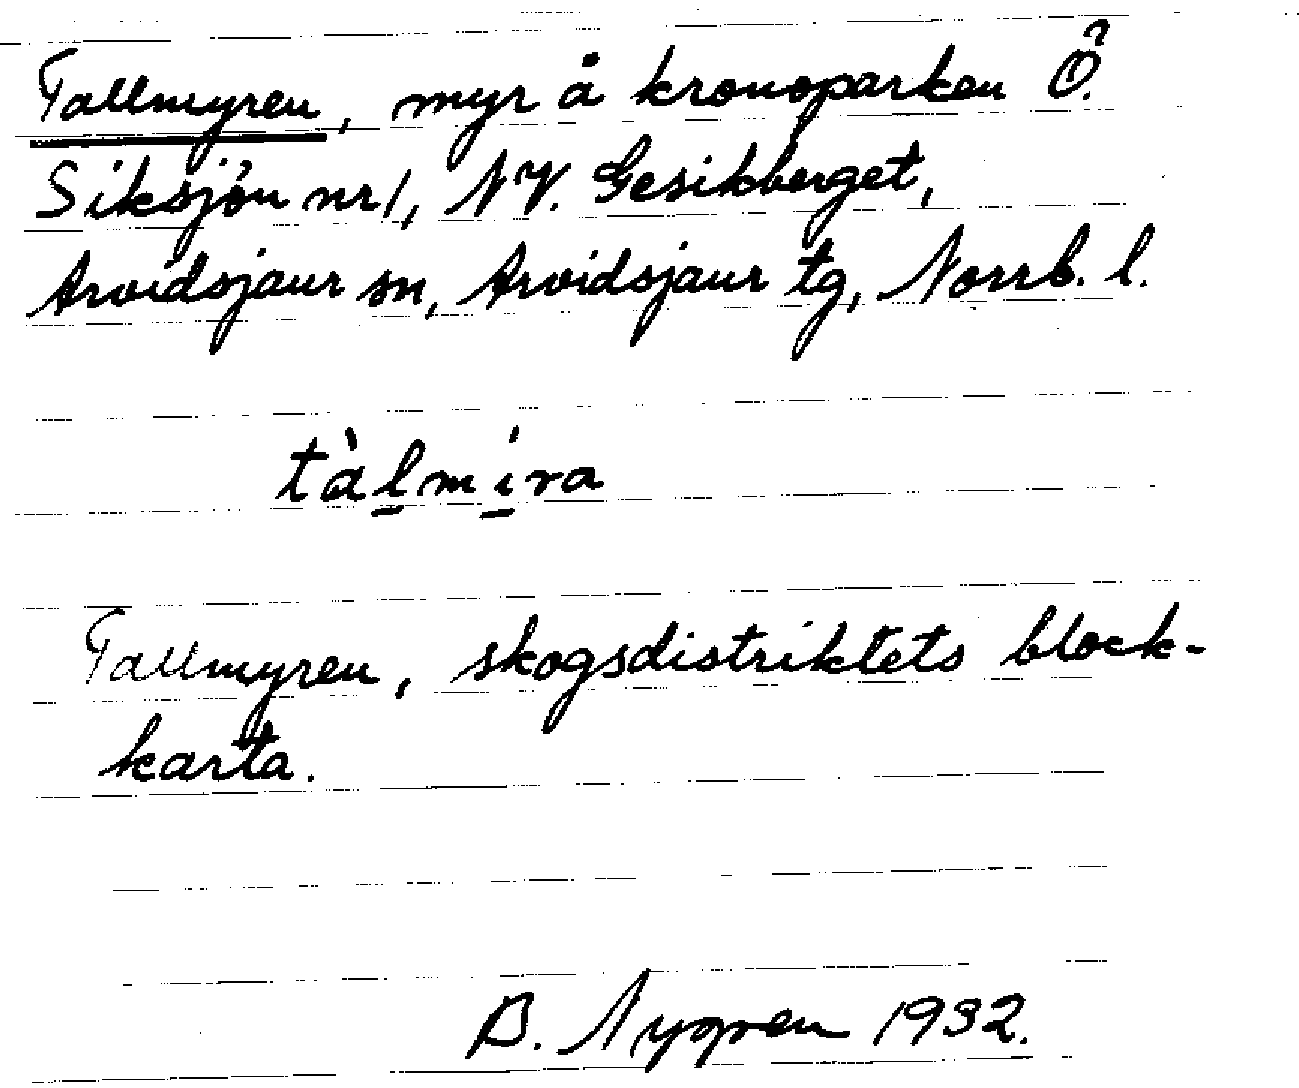 Tallmyren, myr å kronoparken Ö.
Siksjön nr 1, NV. Gesikberget,
Arvidsjaur sn, Arvidsjaur tg, Norrb. l.
tàlmíra
Tallmyren, skogsdistriktets block-
karta.
B. Nygren 1932.